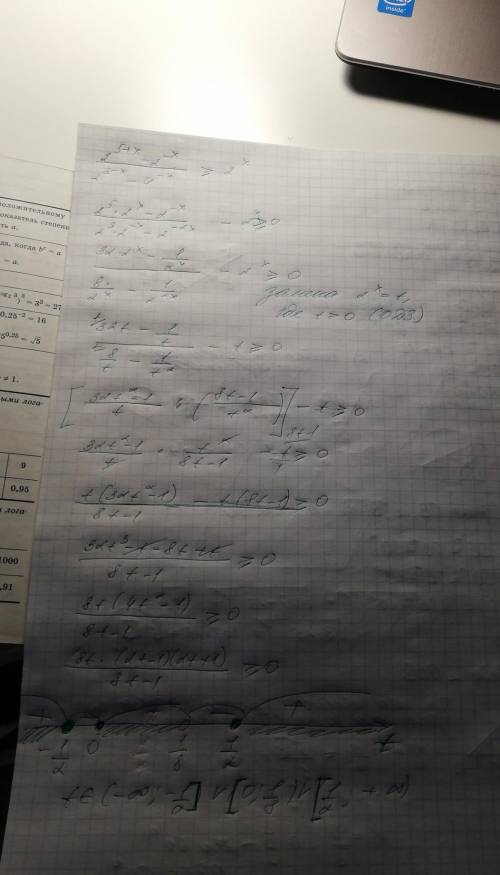 inside
2^{5+x} - 2^{-x} / 2^{3-x} - 4^{-x} ≥ 2^x
2^5 · 2^x - 2^{-x} / 2^3 · 2^{-x} - 2^{-2x} - 2^x ≥ 0
32 · 2^x - 1/2^x / 8/2^x - 1/2^{2x} - 2^x ≥ 0
замена 2^x = t,
где t > 0 (ОДЗ)
32t - 1/t / 8/t - 1/t^2 - t ≥ 0
[ 32t^2 - 1 / t : ( 8t - 1 / t^2 ) ] - t ≥ 0
32t^2 - 1 / t · t^2 / 8t - 1 - t/1 ≥ 0
8t-1
t(32t^2 - 1) - t(8t - 1) / 8t - 1 ≥ 0
32t^3 - t - 8t + t / 8t - 1 ≥ 0
8t(4t^2 - 1) / 8t - 1 ≥ 0
8t · (2t - 1)(2t + 1) / 8t - 1 ≥ 0
+ - + - + t
-1/2 0 1/8 1/2
положительному
показатель степени
ть a.
да, когда b^c = a
= a.
= 3^3 = 27
0,25^{-2} = 16
5^{0,25} = √5
≠ 1.
9
0,95
1000
,91